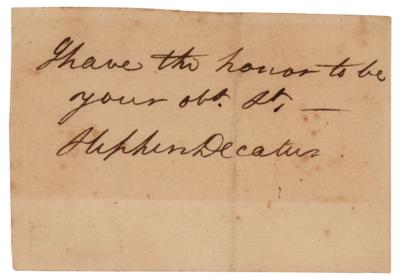 I have the honor to be
your obt. St, —
Stephen Decatur